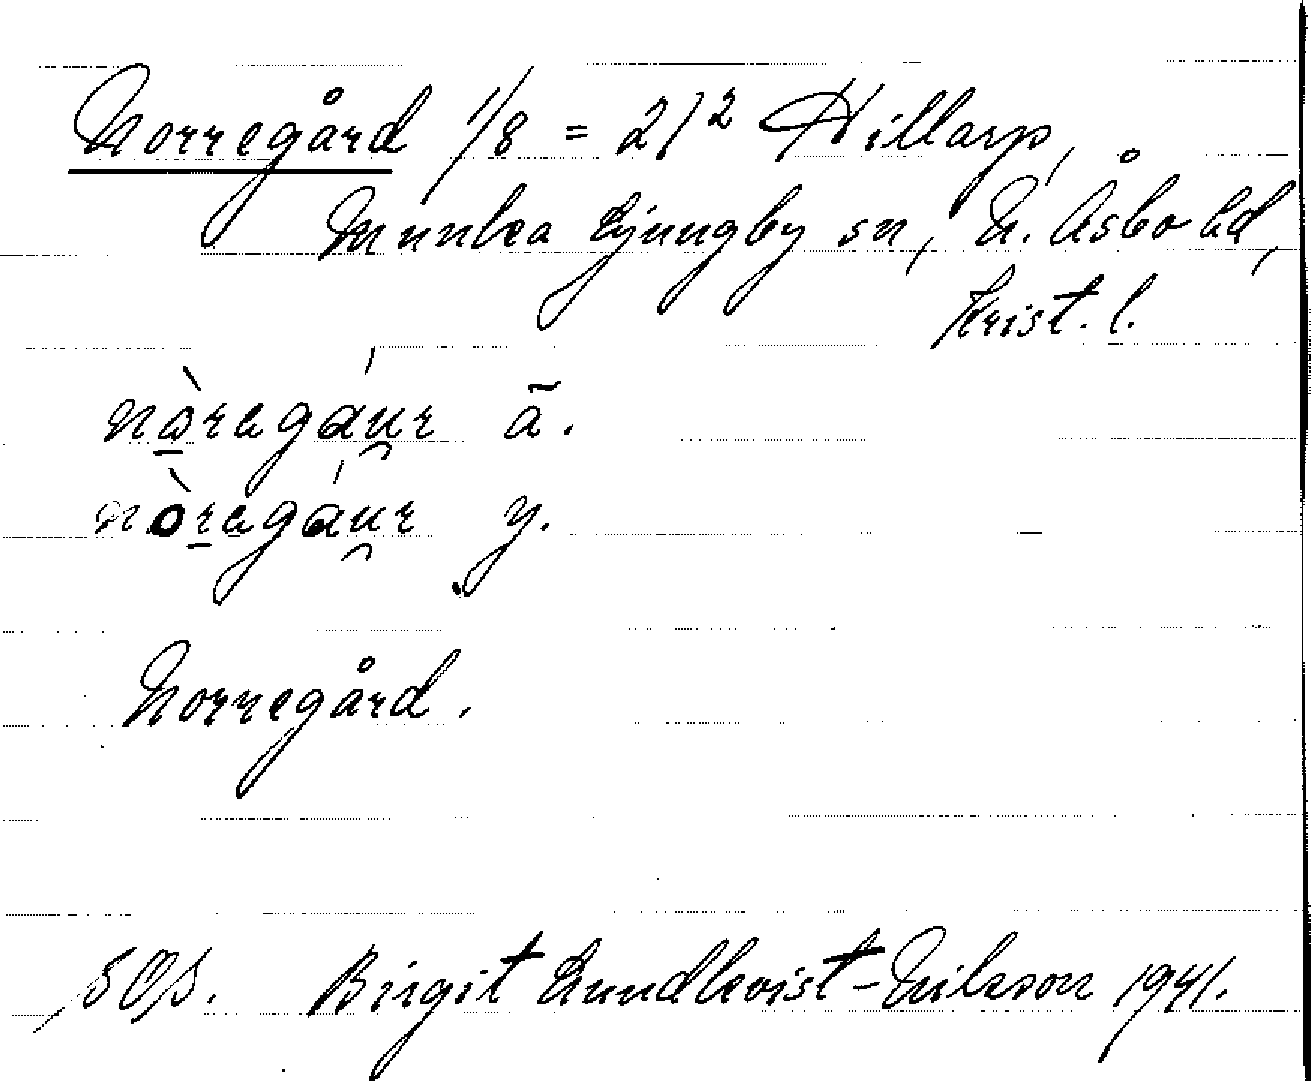 Norregård 1/8 = 21² Hillarp,
Munka Ljungby sn, N. Åsbo hd,
Krist. l.
nàregáur ä.
nòregáur y.
Norregård.
Birgit Lundkvist-Nilsson 1941.